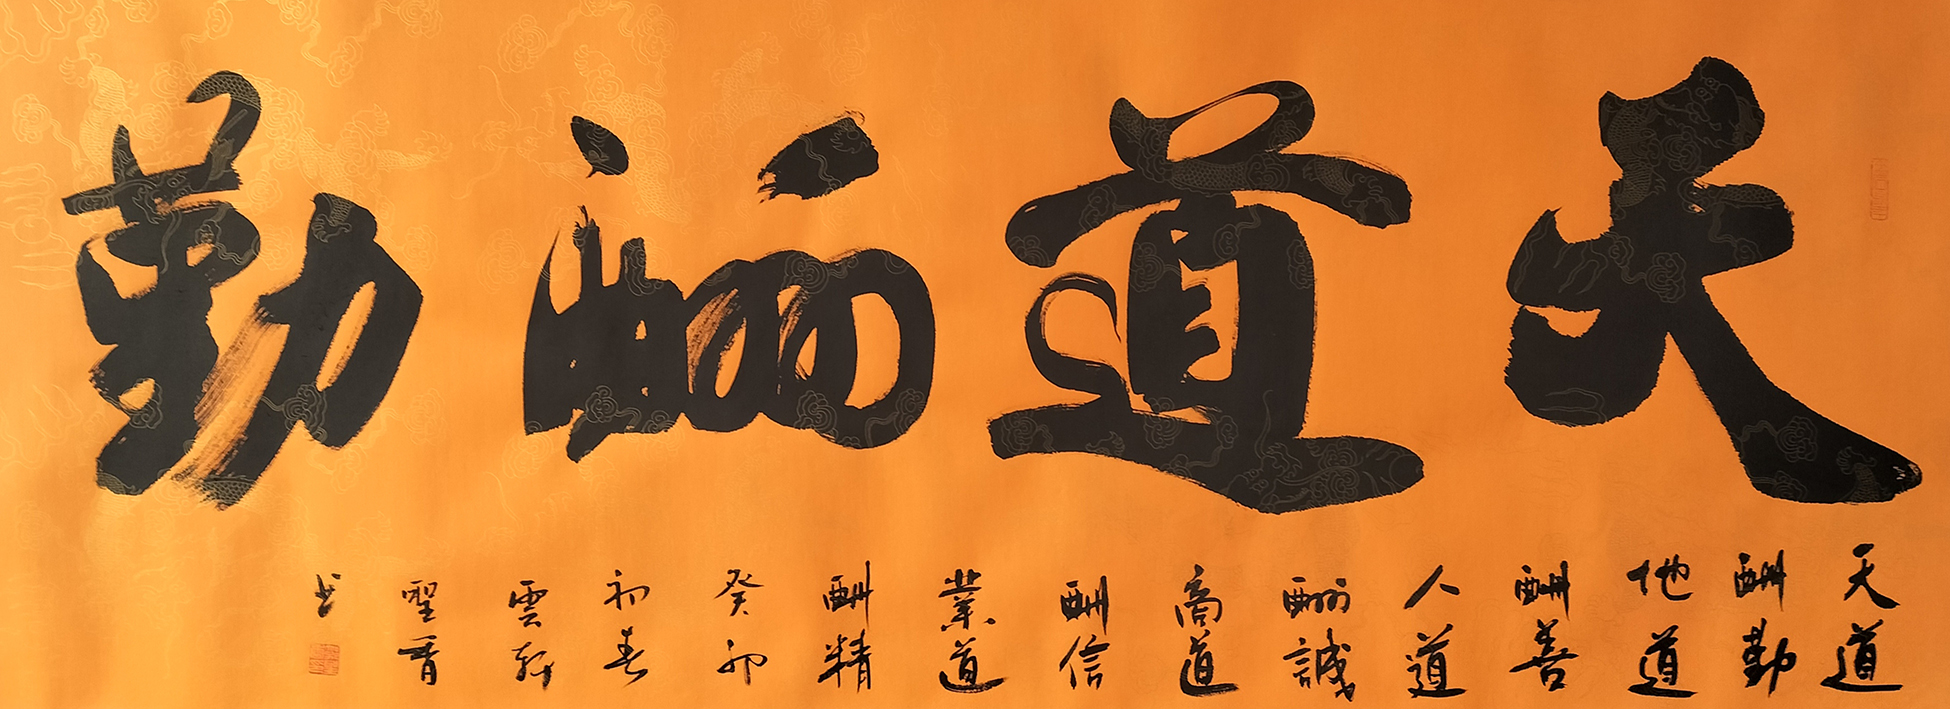 天道酬勤
天道
酬勤
地道
酬善
人道
酬誠
商道
酬信
業道
酬精
癸卯
初春
雲軒
聖晋
书